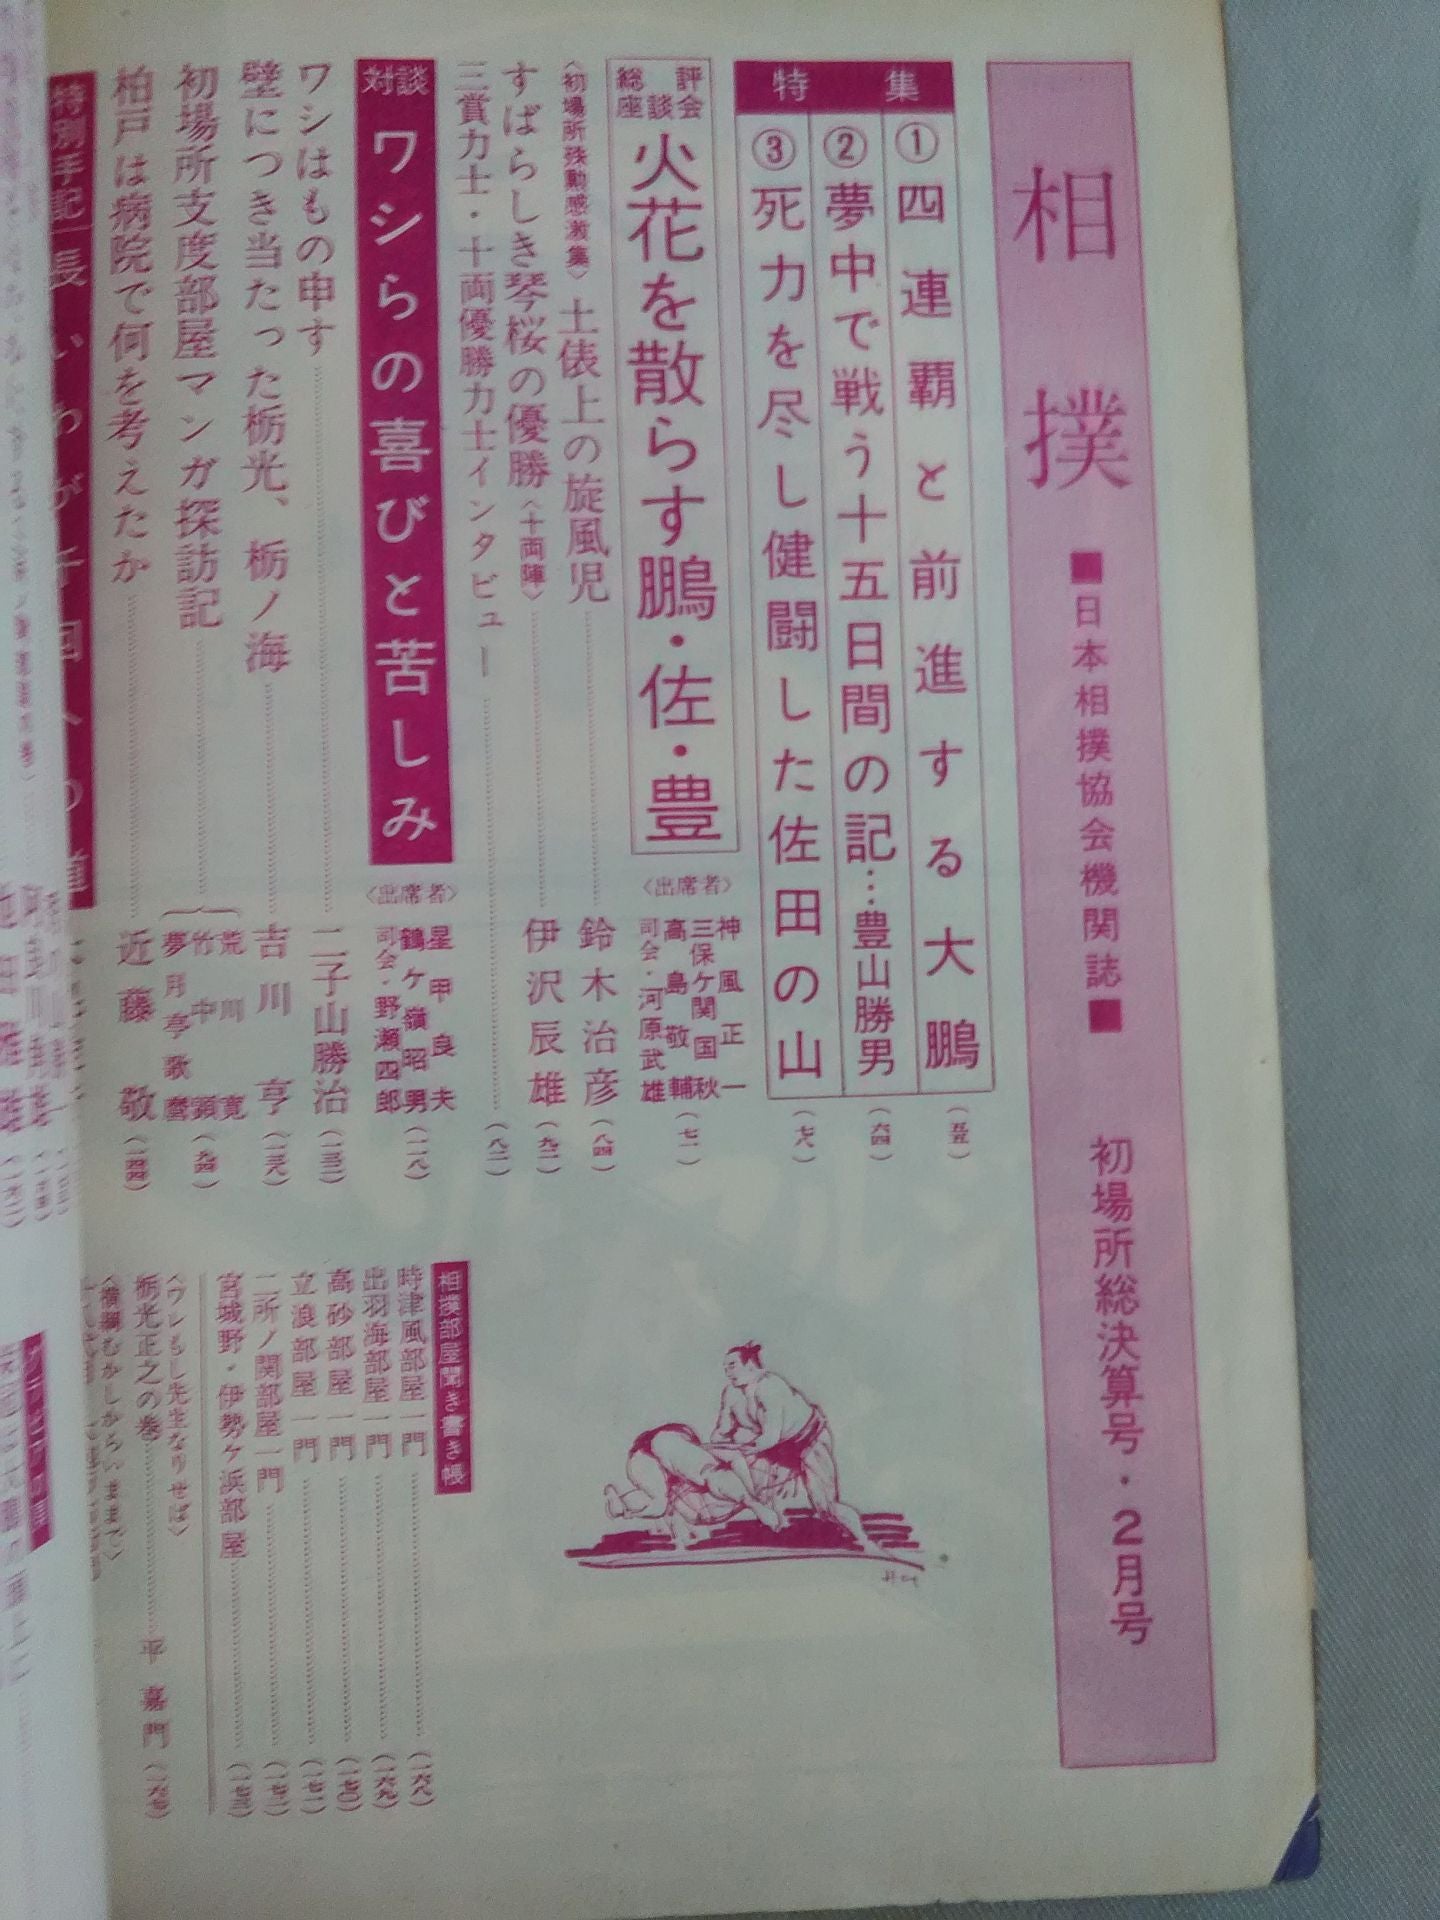 相撲 ■日本相撲協会機関誌■ 初場所総決算号・2月号
特集
①四連覇と前進する大鵬 (五五)
②夢中で戦う十五日間の記…豊山勝男 (六四)
③死力を尽し健闘した佐田の山 (七八)
総評座談会
火花を散らす鵬・佐・豊
〈出席者〉
神風正一
三保ケ関国秋
高島敬輔
司会・河原武雄
(七一)
〈初場所殊勲感激集〉 土俵上の旋風児 鈴木治彦 (八四)
すばらしき琴桜の優勝〈十両陣〉 伊沢辰雄 (九二)
三賞力士・十両優勝力士インタビュー (八二)
対談 ワシらの喜びと苦しみ
〈出席者〉
星甲良夫
鶴ケ嶺昭男
司会・野瀬四郎
(一一八)
ワシはもの申す 二子山勝治 (一三二)
壁につき当たった栃光、栃ノ海 吉川亨 (一三八)
初場所支度部屋マンガ探訪記
荒川寛
竹中顕
夢月亭歌麿
(九四)
柏戸は病院で何を考えたか 近藤敬 (一四四)
特別手記
相撲部屋聞き書き帳
時津風部屋一門 (一六八)
出羽海部屋一門 (一六九)
高砂部屋一門 (一七〇)
立浪部屋一門 (一七一)
二所ノ関部屋一門 (一七二)
宮城野・伊勢ケ浜部屋 (一七三)
〈ワレもし先生なりせば〉
栃光正之の巻 平嘉門 (一六七)
〈横綱むかしからいままで〉